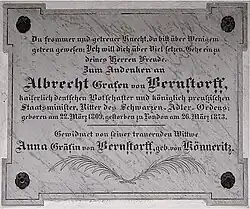 Du frommer und getreuer Knecht, du bist über Wenigem
getreu gewesen Ich will dich über Viel setzen. Gehe ein zu
deines Herren Freude.
Zum Andenken an
Albrecht Grafen von Bernstorff,
kaiserlich deutschen Botschafter und königlich preußischen
Staatsminister, Ritter des Schwarzen-Adler-Ordens
geboren am 22. März 1809, gestorben zu London am 26. März 1873.
Gewidmet von seiner trauernden Wittwe
Anna Gräfin von Bernstorff, geb. von Könneritz.